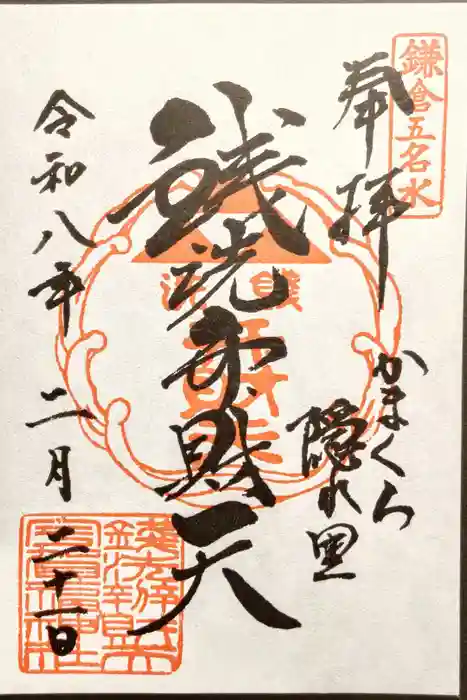 鎌倉五名水
奉拝
かまくら
隠れ里
銭洗弁財天
令和八年二月二十一日